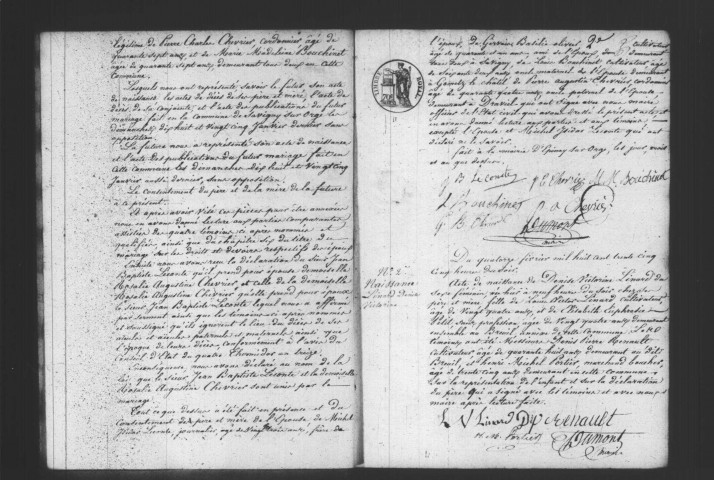 légitime de Pierre Charles Chevrier, cordonnier âgé de
quarante sept ans, et de Marie Madeleine Bouchinet
âgée de quarante sept ans, demeurant tous deux en cette
Commune.
Lesquels nous ont représenté, savoir le futur son acte
de naissance, les actes de décès de ses père et mère, l'acte de
décès de sa conjointe, et l'acte des publications du futur
mariage fait en la commune de Savigny sur Orge les
dimanches dix huit et vingt cinq Janvier dernier sans
opposition.
La future nous a représenté son acte de naissance
et l'acte des publications du futur mariage fait en
cette commune les dimanches dix huit et vingt cinq
Janvier aussi dernier, sans opposition.
Le Consentement du père et de la mère de la future
à ce présent.
Et après avoir visé ces pièces pour être annexées
nous en avons donné lecture aux parties comparantes
assistées de quatre témoins ci après nommés et
qualifiés, ainsi que du chapitre six du titre du
mariage sur les droits et devoirs respectifs des époux.
Ensuite nous avons reçu la déclaration du Sieur Jean
Baptiste Lecomte qu'il prend pour épouse demoiselle
Rosalie Augustine Chevrier, et celle de la demoiselle
Rosalie Augustine Chevrier qu'elle prend pour époux
le sieur Jean Baptiste Lecomte lequel nous a affirmé
par serment ainsi que les témoins ci après nommés
et soussignés qu'ils ignorent le lieu du décès de ses
aïeuls et aïeules paternels et maternels ainsi que
l'époque de leurs décès, conformément à l'avis du
Conseil d'Etat du quatre thermidor an treize.
En conséquence, nous avons déclaré au nom de la
loi que le sieur Jean Baptiste Lecomte et la demoiselle
Rosalie Augustine Chevrier sont unis par le
mariage.
Tout ce que dessus a été fait en présence et du
Consentement des père et mère de l'Epouse de Michel
Isidore Lecomte, journalier, âgé de vingt trois ans, frère de
l'époux, de Germain cultivateur
âgé de quarante un ans, ami de l'Epoux, demeurant
tous deux à Savigny, de Louis Bouchinet cultivateur âgé
de soixante dix ans, oncle maternel de l'Epouse demeurant
à et de Pierre Augustin Chevrier cordonnier
âgé de quarante quatre ans, oncle paternel de l'Epouse
demeurant à Draveil, qui ont signé avec nous, maire
officier de l'Etat civil, après lecture
excepté l'Epouse et Michel Isidore Lecomte qui ont
déclaré ne le savoir.
Fait à la mairie d'Epinay sur Orge, les jour, mois
et an que dessus.
J B Lecomte P C Chevrier M. M. Bouchinet
L Bouchinet P A Chevrier
G B
Dumont
maire
N° 2
Naissance
Lénard Denise
Victorine
Du quatorze février mil huit cent trente cinq
cinq heures du soir.
Acte de naissance de Denise Victorine Lénard du
sexe féminin, née hier à neuf heures du soir chez ses
père et mère fille de Louis Victor Lénard cultivateur
âgé de vingt quatre ans, et de Elisabeth Euphrosine
Petit sans profession âgée de vingt quatre ans demeurant
ensemble au Breuil annexe de cette Commune. Les
témoins ont été Messieurs Denis Pierre Renault
cultivateur âgé de quarante huit ans demeurant au dit
Breuil, et Henri Michel Portier marchand boucher,
âgé de trente cinq ans demeurant en cette commune.
Sur la représentation de l'enfant et sur la déclaration
du père qui a signé avec les témoins et avec nous
maire après lecture faite.
L V Lénard D P Renault
H. M. Portier Dumont
maire